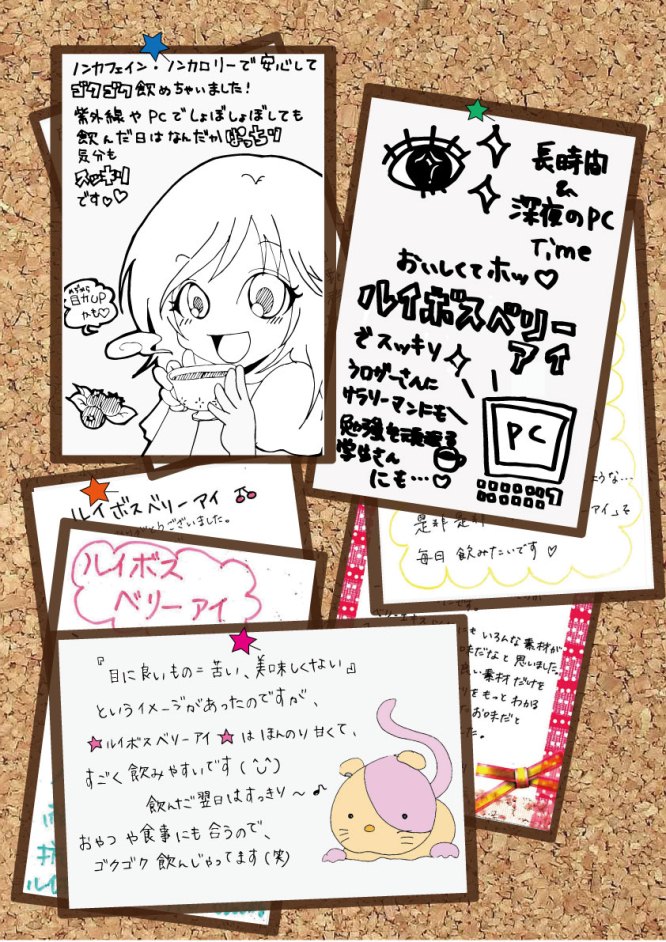 ノンカフェイン・ノンカロリーで安心して
ゴクゴク飲めちゃいました!
紫外線やPCでしょぼしょぼしても
飲んだ日はなんだかぱっちり
気分も
スッキリ
です♡♡
めぢから
目力UP
かも♡
長時間
&
深夜のPC
Time
おいしくてホッ♡
ルイボスベリー
アイ
でスッキリ
ブロガーさんに
サラリーマンにも
勉強を頑張る
学生さん
にも…♡
PC
ような…
是非是非
アイ」を
毎日飲みたいです♡
ルイボスベリーアイ
ございました。
ルイボス
ベリーアイ
にもいろんな素材が
味だなと思いました。
良い素材だけを
をもっとわかる
お味だと
た。
『目に良いもの=苦い、美味しくない』
というイメージがあったのですが、
★ルイボスベリーアイ★はほんのり甘くて、
すごく飲みやすいです(^_^)
飲んだ翌日はすっきり〜♪
おやつや食事にも合うので、
ゴクゴク飲んじゃってます(笑)